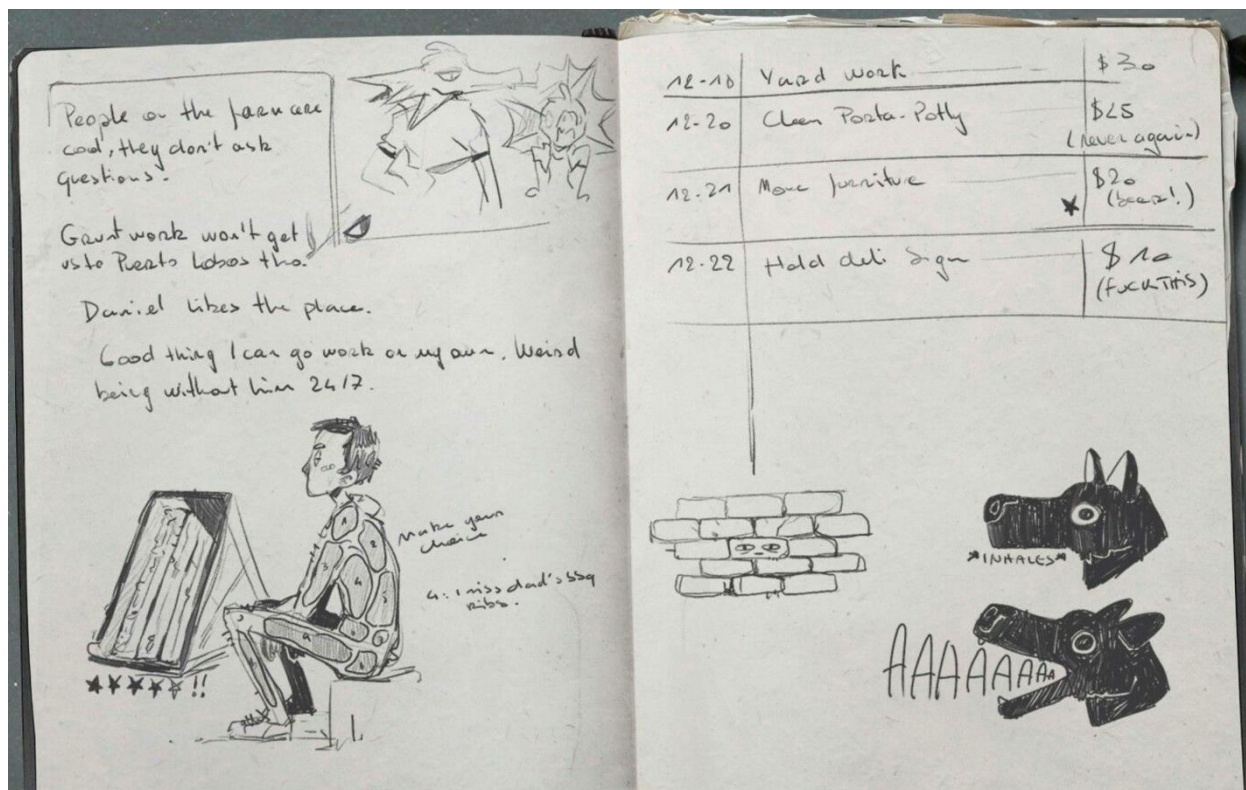 People on the farm are
cool, they don't ask
questions.
Grunt work won't get
us to Puerto Lobos tho.
Daniel likes the place.
Good thing I can go work on my own. Weird
being without him 24/7.
Make your
choice
4: I miss dad's BBQ
Ribs.
1
2
3
4
5
6
9
!!
12-18 Yard work $30
12-20 Clean Porta-Potty $25
(never again)
12-21 Move furniture $20
(beer!)
12-22 Hold deli Sign $10
(FUCK THIS)
*INHALES*
AAAAAAAAA